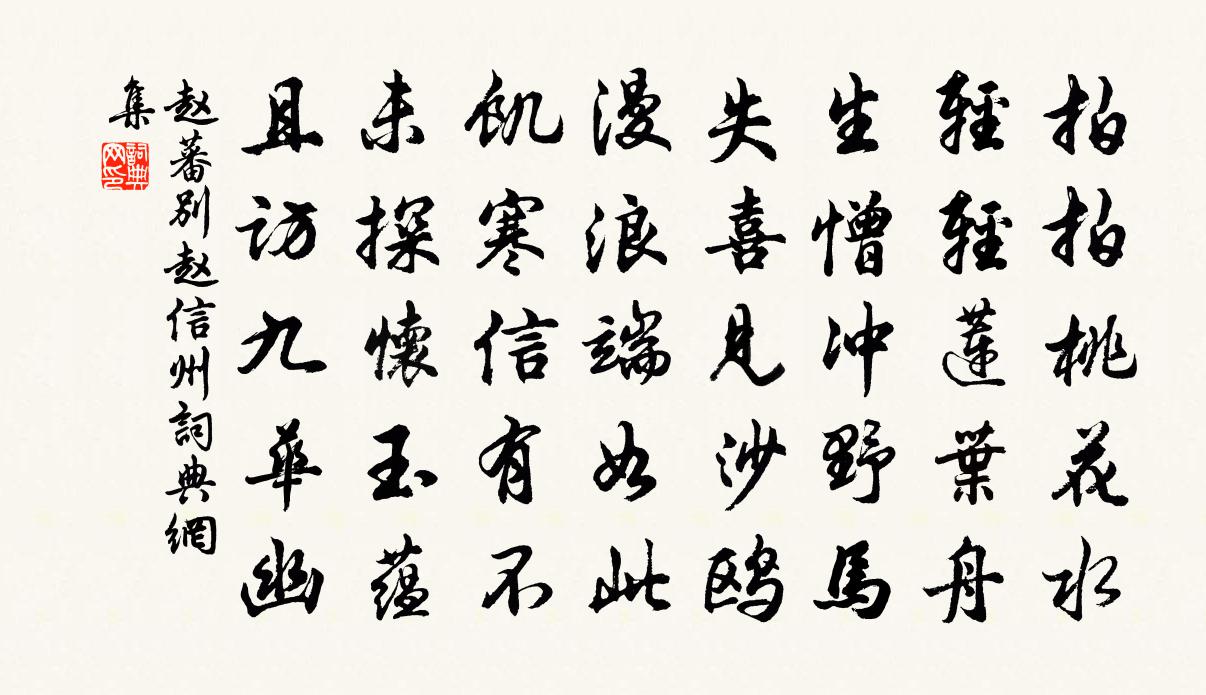 拍拍桃花水
輕輕蓮葉舟
生憎冲野馬
失喜見沙鸥
漫浪端如此
飢寒信有不
未探懷玉蘊
且访九華幽
赵蕃别赵信州詞典網
集
詞典
网印